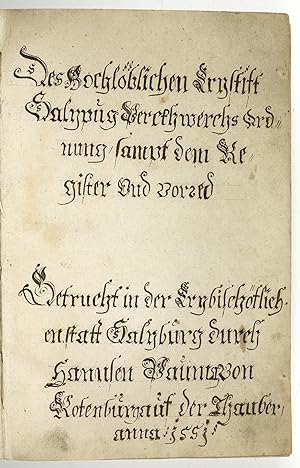 Des Hochlöblichen Ertzstifft
Saltzpurg Perckhwerchs Ord-
nung sampt dem Re-
gister Vnd Vorred
Getruckt in der Ertzbischöflich-
en statt Saltzburg durch
Hannsen Paumā von
Rotenburg auf der Thauber
anno 1551